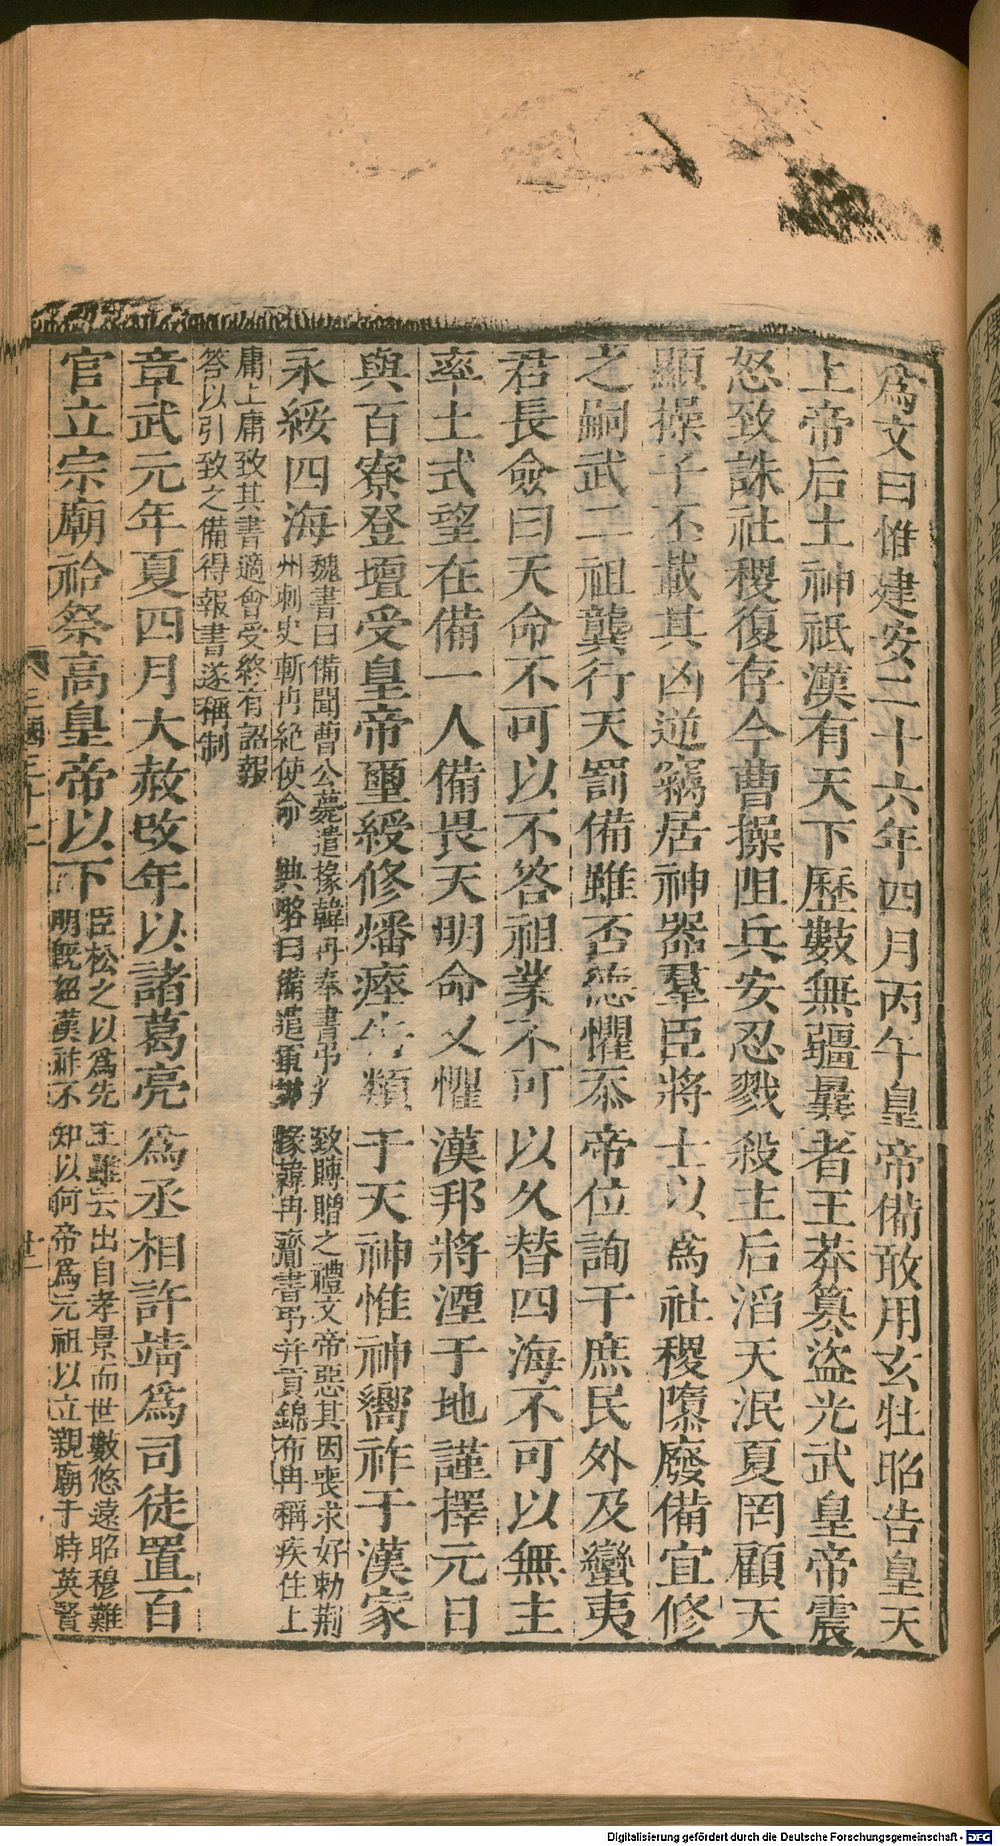 爲文曰惟建安二十六年四月丙午皇帝備敢用玄牡昭告皇天
上帝后土神祇漢有天下歷數無疆曩者王莽篡盜光武皇帝震
怒致誅社稷復存今曹操阻兵安忍戮殺主后滔天泯夏罔顧天
顯操子丕載其凶逆竊居神器羣臣將士以爲社稷隳廢備宜修
之嗣武二祖龔行天罰備雖否德懼忝帝位詢于庶民外及蠻夷
君長僉曰天命不可以不答祖業不可以久替四海不可以無主
率土式望在備一人備畏天明命又懼漢邦將湮于地謹擇元日
與百寮登壇受皇帝璽綬修燔瘞告類于天神惟神嚮祚于漢家
永綏四海
魏書曰備聞曹公薨遣掾韓冉奉書弔并致賻贈之禮文帝惡其因喪求好勅荆
州刺史斬冉絶使命 典略曰備遣軍謀掾韓冉齎書弔并貢錦布冉稱疾住上
庸上庸致其書適會受終有詔報
答以引致之備得報書遂稱制
章武元年夏四月大赦改年以諸葛亮爲丞相許靖爲司徒置百
官立宗廟祫祭高皇帝以下
臣松之以爲先主雖云出自孝景而世數悠遠昭穆難
明既紹漢祚不知以何帝爲元祖以立親廟于時英賢
三國三十二
廿二
Digitalisierung gefördert durch die Deutsche Forschungsgemeinschaft - DFG